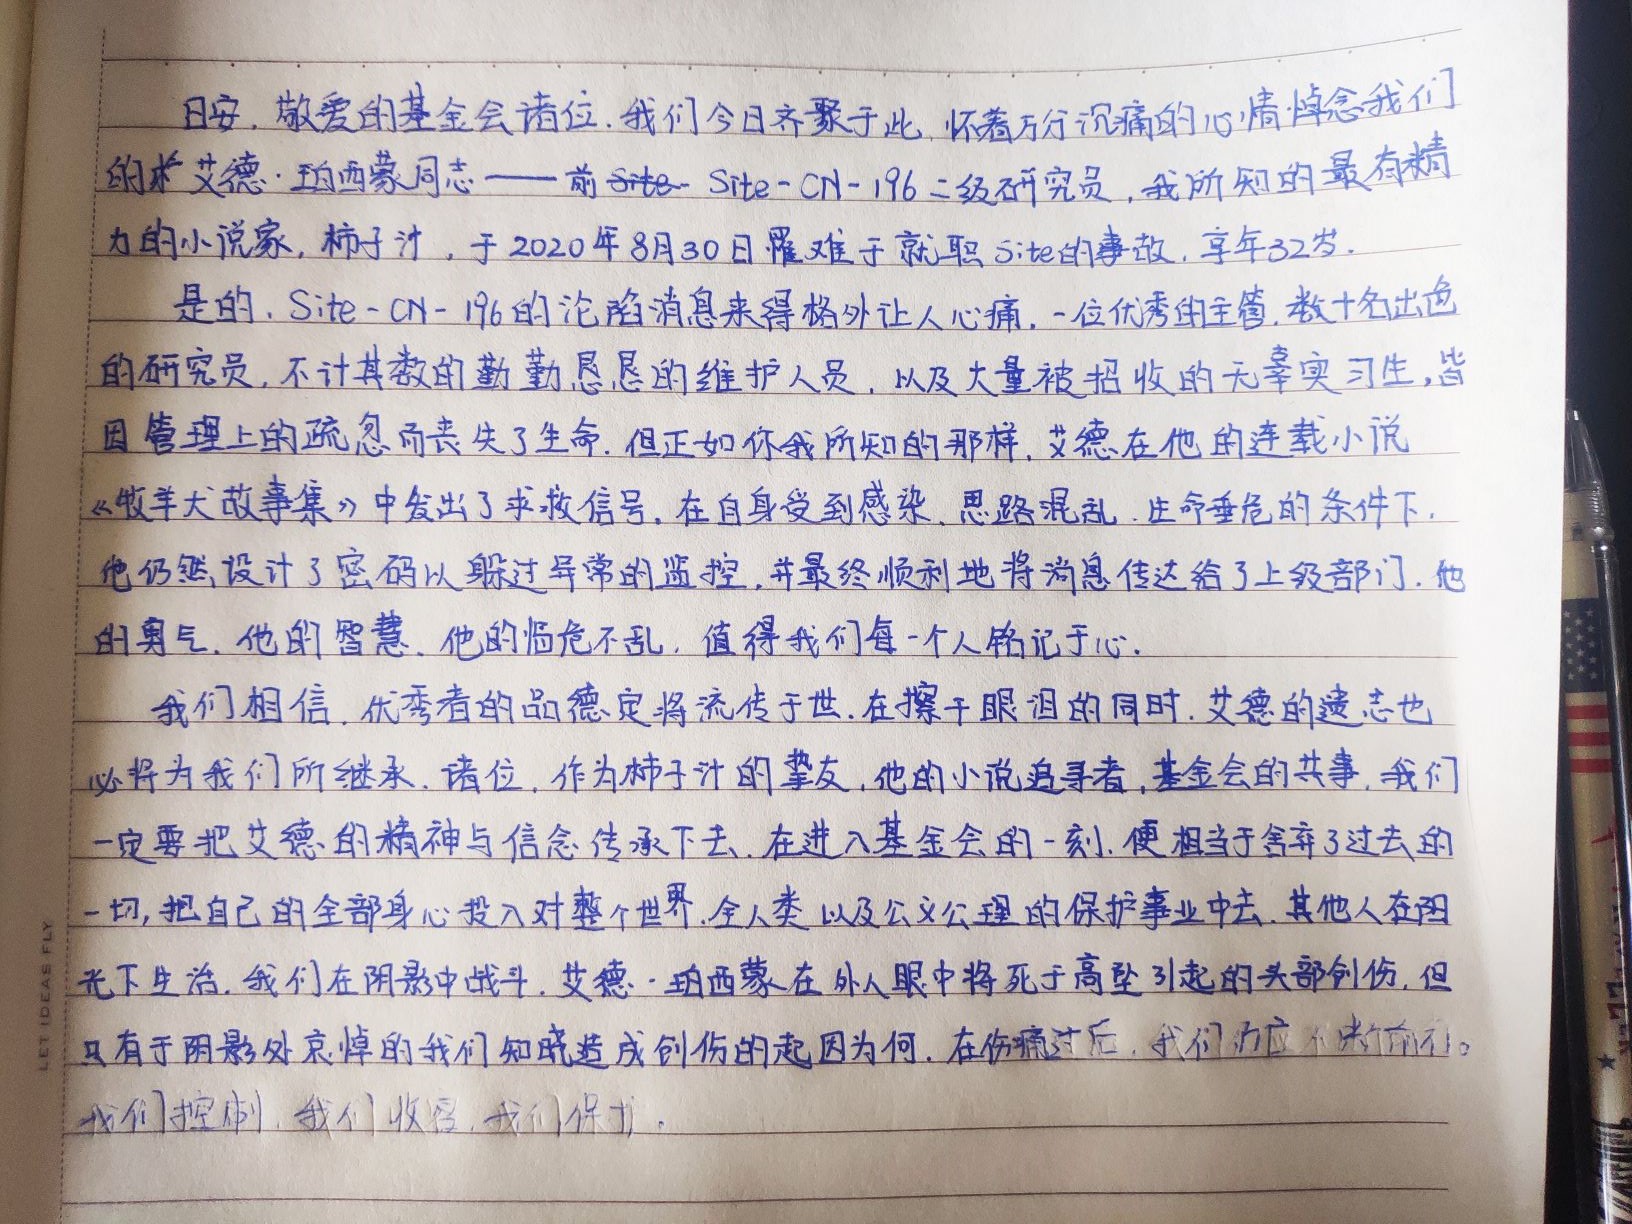 日安，敬爱的基金会诸位。我们今日齐聚于此，怀着万分沉痛的心情悼念我们
的 艾德·珀西蒙同志——前 Site- Site-CN-196 二级研究员，我所知的最有精
力的小说家，柿子汁，于2020年8月30日罹难于就职Site的事故，享年32岁。
是的，Site-CN-196的沦陷消息来得格外让人心痛。一位优秀的主管，数十名出色
的研究员，不计其数的勤勤恳恳的维护人员，以及大量被招收的无辜实习生，皆
因管理上的疏忽而丧失了生命。但正如你我所知的那样，艾德在他的连载小说
《牧羊犬故事集》中发出了求救信号。在自身受到感染、思路混乱、生命垂危的条件下，
他仍然设计了密码以躲过异常的监控，并最终顺利地将消息传达给了上级部门。他
的勇气、他的智慧、他的临危不乱，值得我们每一个人铭记于心。
我们相信，优秀者的品德定将流传于世。在擦干眼泪的同时，艾德的遗志也
必将为我们所继承。诸位，作为柿子汁的挚友，他的小说追寻者，基金会的共事，我们
一定要把艾德的精神与信念传承下去。在进入基金会的一刻，便相当于舍弃了过去的
一切，把自己的全部身心投入对整个世界、全人类以及公义公理的保护事业中去。其他人在阳
光下生活，我们在阴影中战斗。艾德·珀西蒙在外人眼中将死于高坠引起的头部创伤，但
只有于阴影处哀悼的我们知晓造成创伤的起因为何。在伤痛过后，我们仍应不断前行。
我们控制，我们收容，我们保护。
LET IDEAS FLY